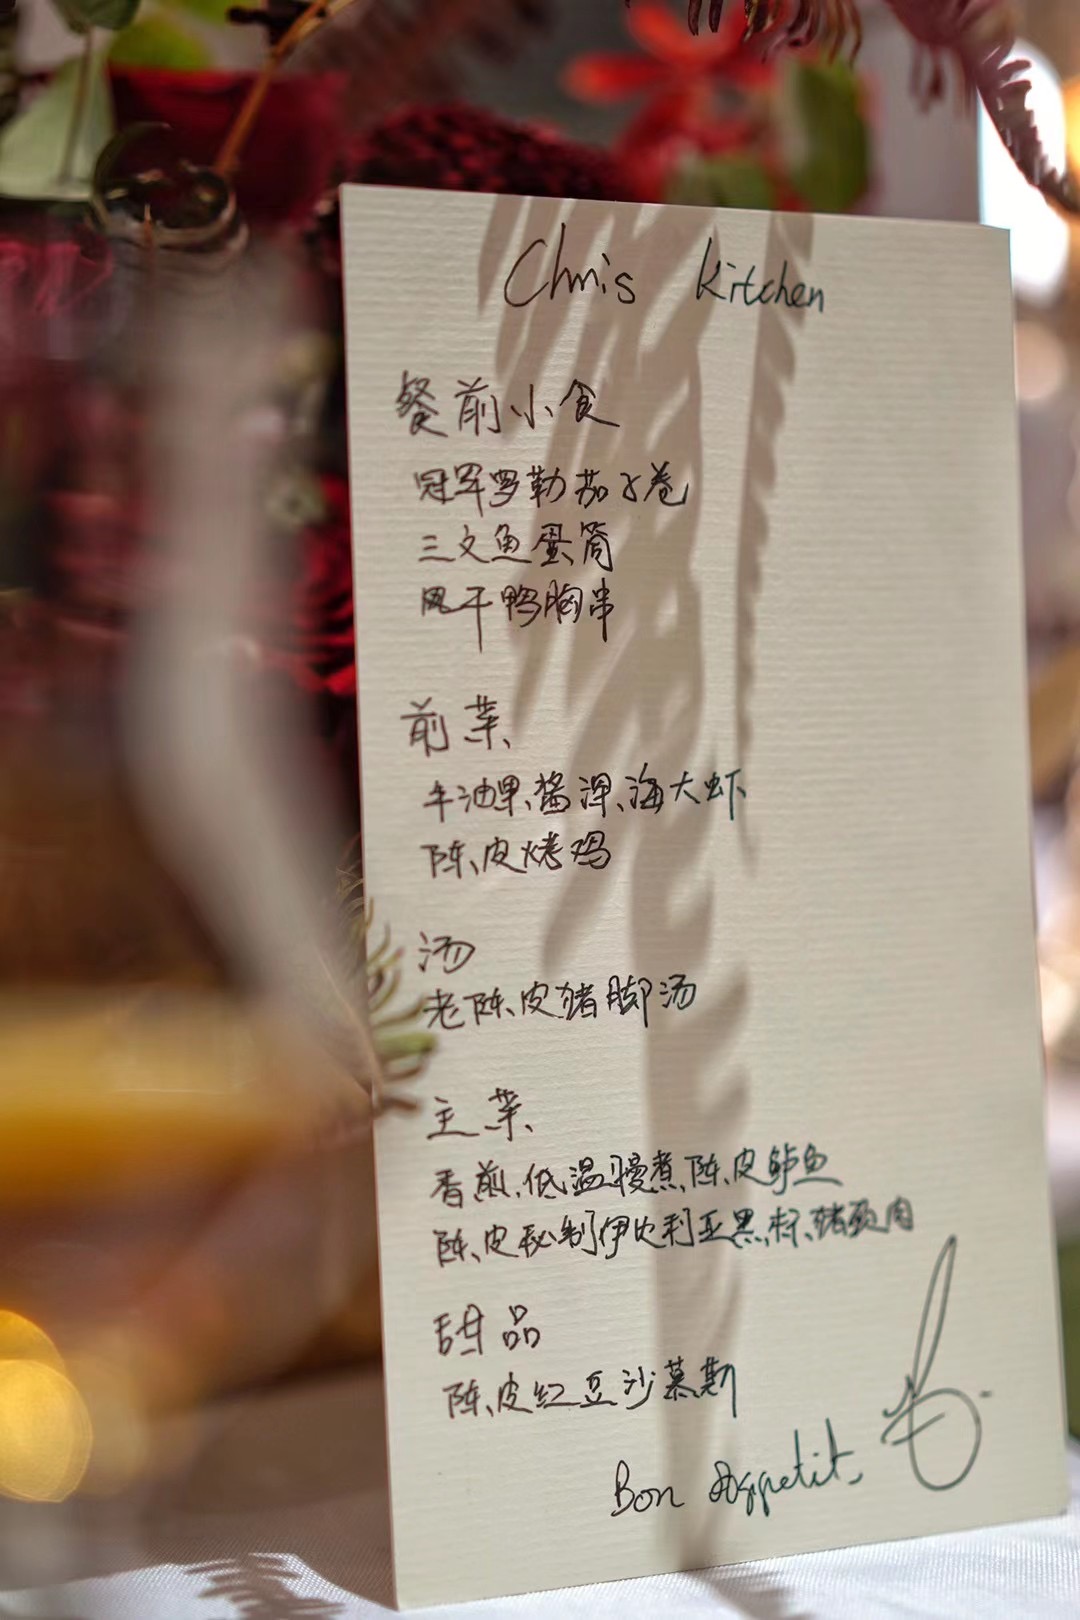 Chris Kitchen
餐前小食
冠军罗勒茄子卷
三文鱼蛋筒
风干鸭胸串
前菜
牛油果酱深海大虾
陈皮烤鸡
汤
老陈皮猪脚汤
主菜
香煎低温慢煮陈皮鲈鱼
陈皮秘制伊比利亚黑标猪颈肉
甜品
陈皮红豆沙慕斯
Bon Appetit,